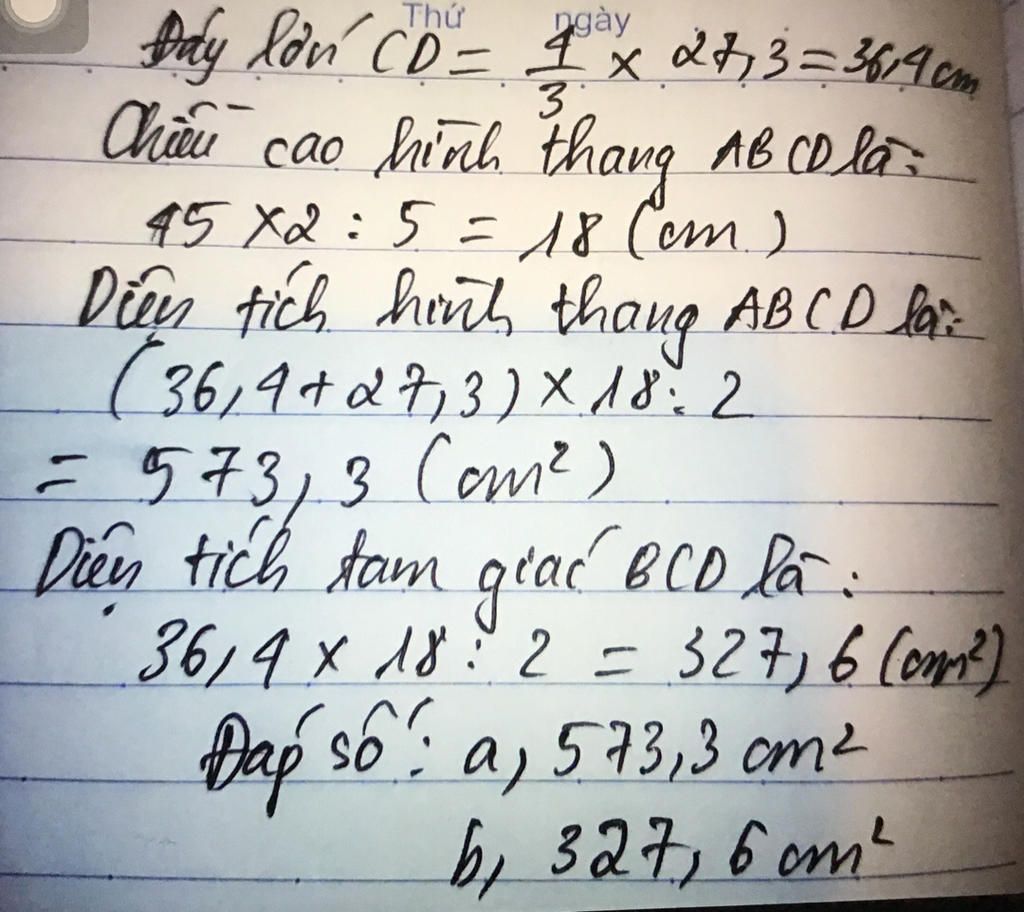 Thứ ngày
Đáy lớn CD = 4/3 x 27,3 = 36,4 cm
Chiều cao hình thang ABCD là:
45 x 2 : 5 = 18 (cm)
Diện tích hình thang ABCD là:
(36,4 + 27,3) x 18 : 2
= 573,3 (cm²)
Diện tích tam giác BCD là:
36,4 x 18 : 2 = 327,6 (cm²)
Đáp số: a, 573,3 cm²
b, 327,6 cm²